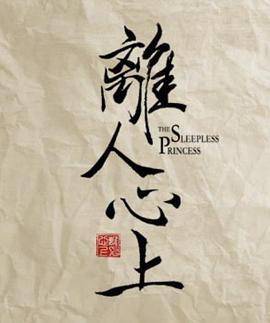 離人心上
THE SLEEPLESS
PRINCESS